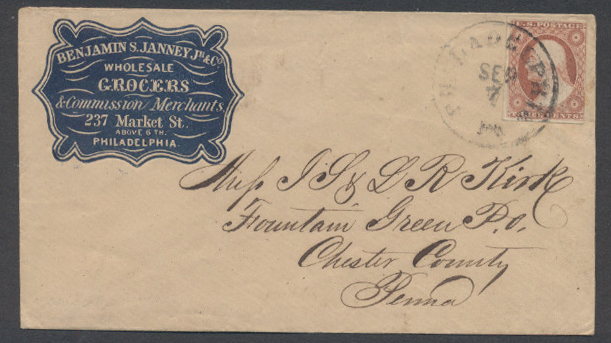 BENJAMIN S. JANNEY Jr. & Co.
WHOLESALE
GROCERS
& Commission Merchants,
237 Market St.
ABOVE 6TH.
PHILADELPHIA.
PHILADELPHIA
SEP
7
PA
U.S. POSTAGE
THREE CENTS
Miss J S & D R Kirk
Fountain Green P.o.
Chester County
Penna